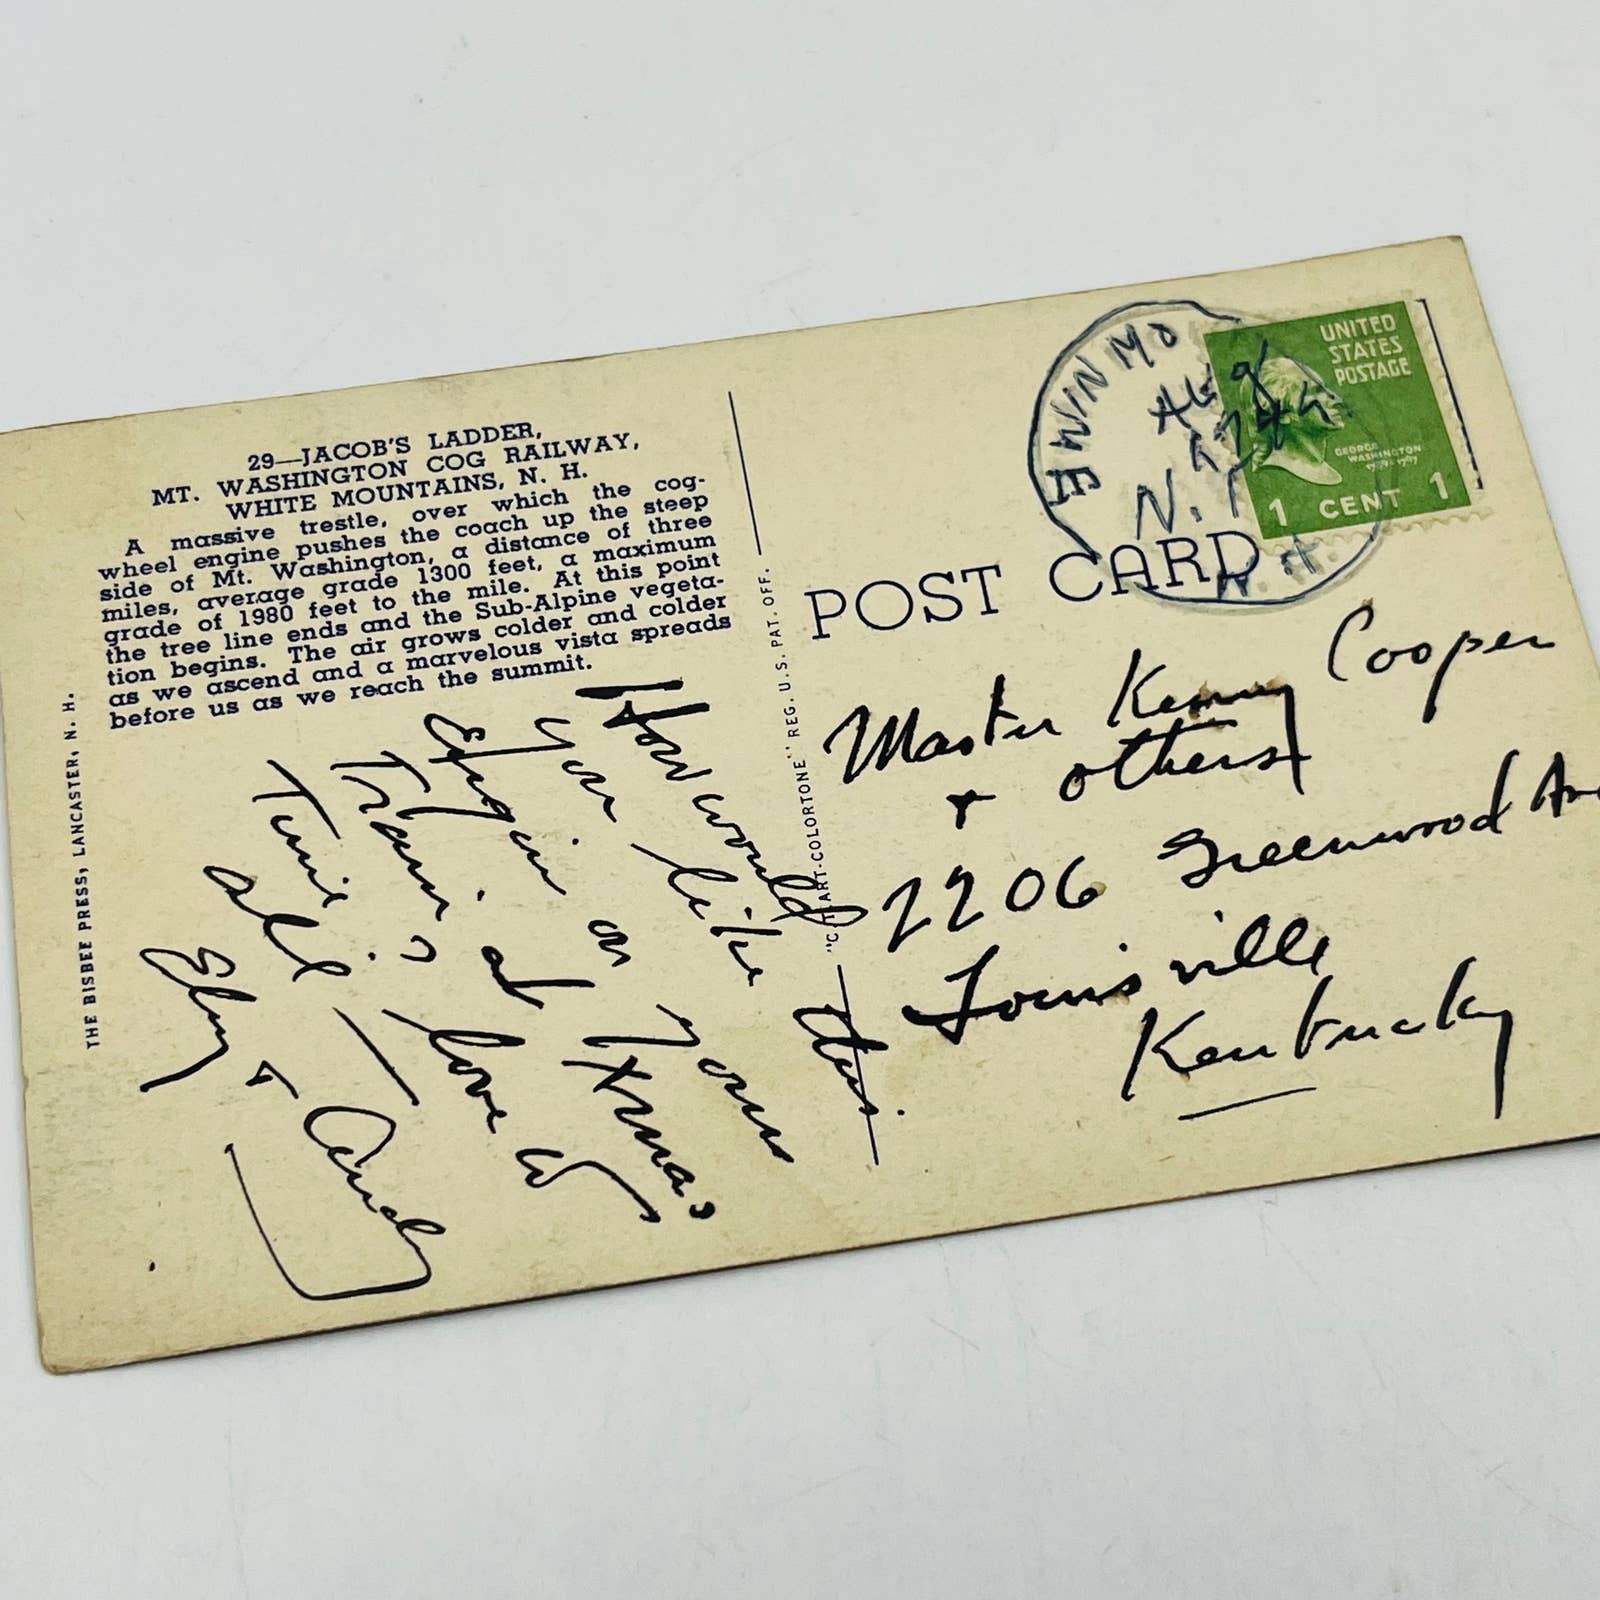 29—JACOB'S LADDER,
MT. WASHINGTON COG RAILWAY,
WHITE MOUNTAINS, N. H.
A massive trestle, over which the cog-
wheel engine pushes the coach up the steep
side of Mt. Washington, a distance of three
miles, average grade 1300 feet, a maximum
grade of 1980 feet to the mile. At this point
the tree line ends and the Sub-Alpine vegeta-
tion begins. The air grows colder and colder
as we ascend and a marvelous vista spreads
before us as we reach the summit.
THE BISBEE PRESS, LANCASTER, N. H.
How would this
you like
Engin on your
Train at Xmas
Time love
all —
& Andy
"C.T. ART-COLORTONE" REG. U.S. PAT. OFF.
POST CARD
UNITED
STATES
POSTAGE
GEORGE
WASHINGTON
1 CENT 1
Aug
N.H.
Master Kenny Cooper
+ others
2206 Greenwood Ave
Louisville
Kentucky